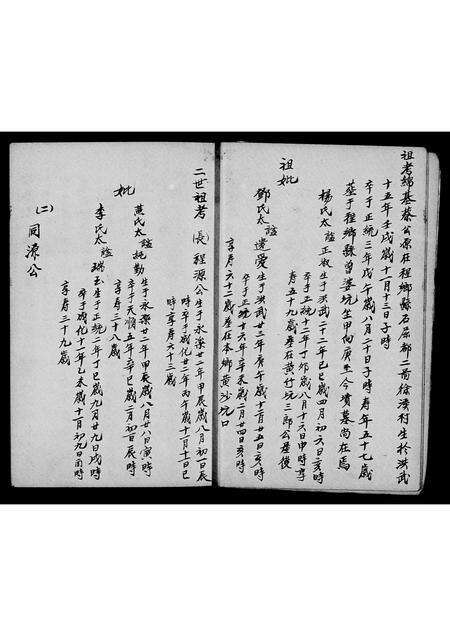 祖考綿基蔡公原在程鄉縣石屈都二啚徐溪村生於洪武
十五年壬戌歲十一月十三日子時
卒于正統三年戊午歲八月二十日子時壽年五十七歲
葬于程鄉縣曾婆坑坐甲向庚生今墳墓尚在焉
祖妣
楊氏太諡正淑生于洪武二十二年己巳歲四月初六日亥時
卒于正統十二年丁卯歲八月十六日申時享
壽五十九歲葬在黃竹坑三郎公墓後
鄧氏太諡遺愛生于洪武廿三年庚午歲十二月廿五日亥時
卒于正統十六年辛未歲二月廿四日亥時
享壽六十二歲葬在本鄉黃沙坑口
二世祖考 (長) 程源公生于永樂廿二年甲辰歲八月初一日辰
時卒于成化廿二年丙午歲十二月十日巳
時享壽六十三歲
妣
黃氏太諡純勤生于永樂廿二年甲辰歲八月廿八日寅時
卒于天順五年辛巳歲二月初一日辰時
享壽三十八歲
李氏太諡瑞玉生于正統二年丁巳歲九月廿九日戌時
卒于成化十一年乙未歲十一月初九日酉時
享壽三十九歲
(二) 同源公